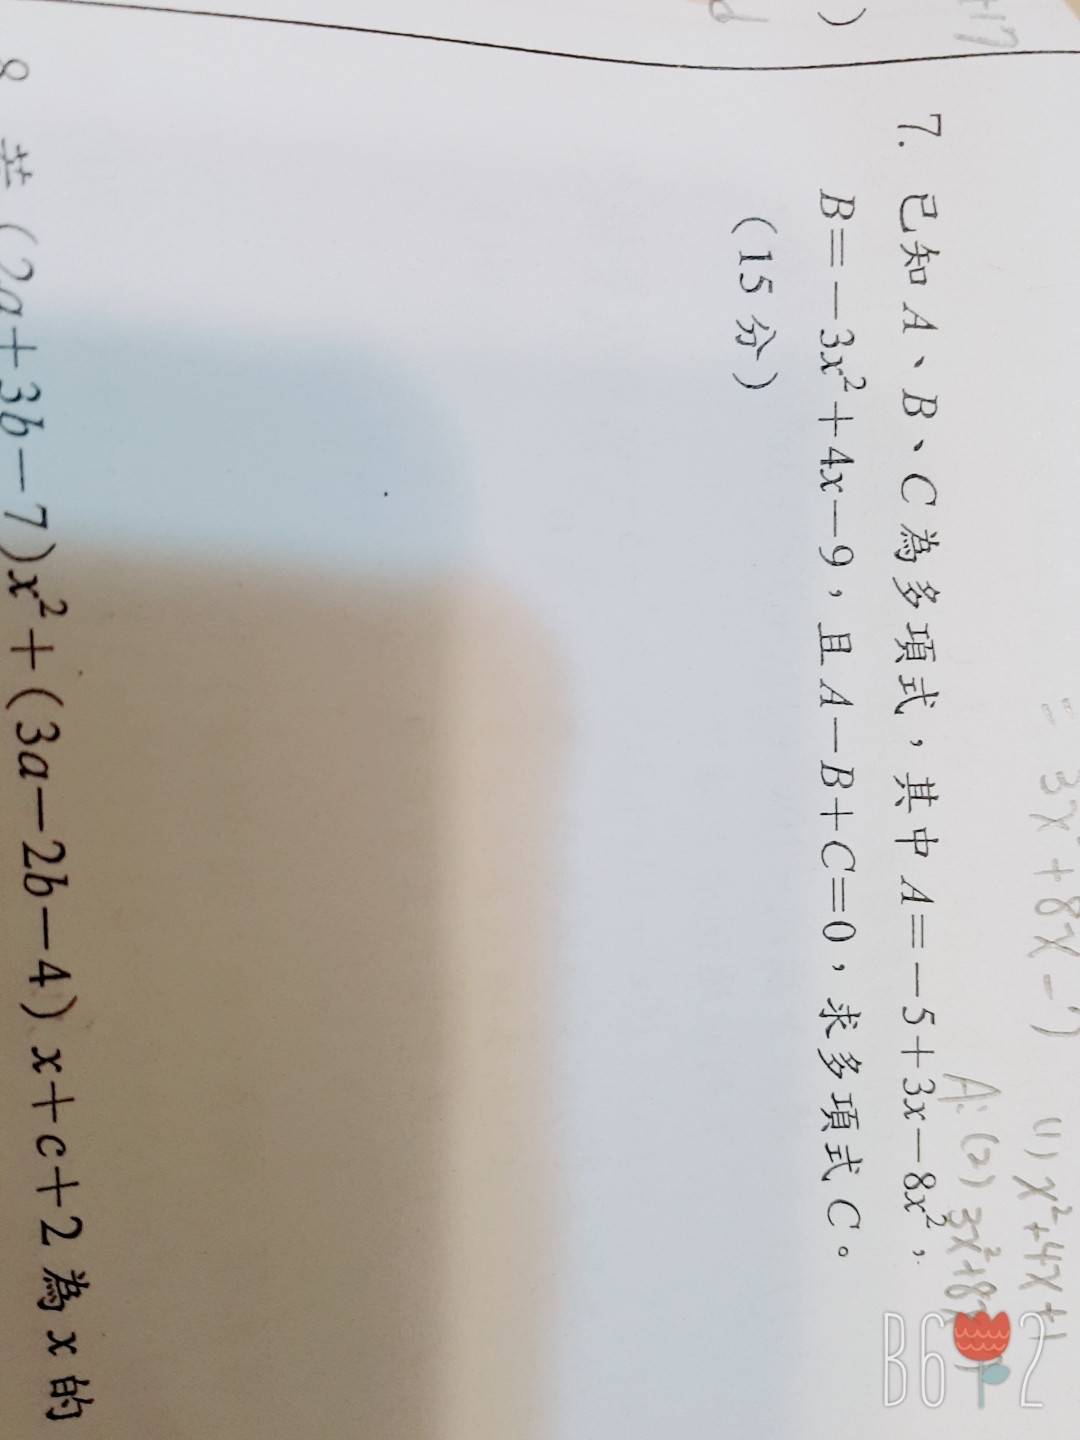 +17
)
= 3x²+8x-
(1) x²+4x+1
A: (2) 3x²+8
7. 已知 A、B、C 為多項式，其中 A=-5+3x-8x²，
B=-3x²+4x-9，且 A-B+C=0，求多項式 C。
(15 分)
8. 若 (2a+3b-7)x²+(3a-2b-4)x+c+2 為 x 的
B612